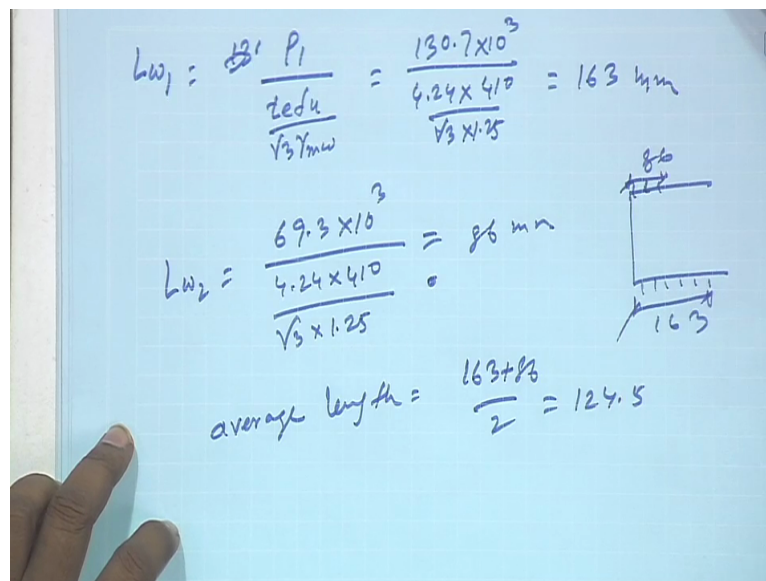 Lw₁ = P₁ / (tefu / √3γmw) = 130.7×10³ / (4.24×410 / √3×1.25) = 163 mm
86
Lw₂ = 69.3×10³ / (4.24×410 / √3×1.25) = 86 mm
163
average length = (163+86) / 2 = 124.5